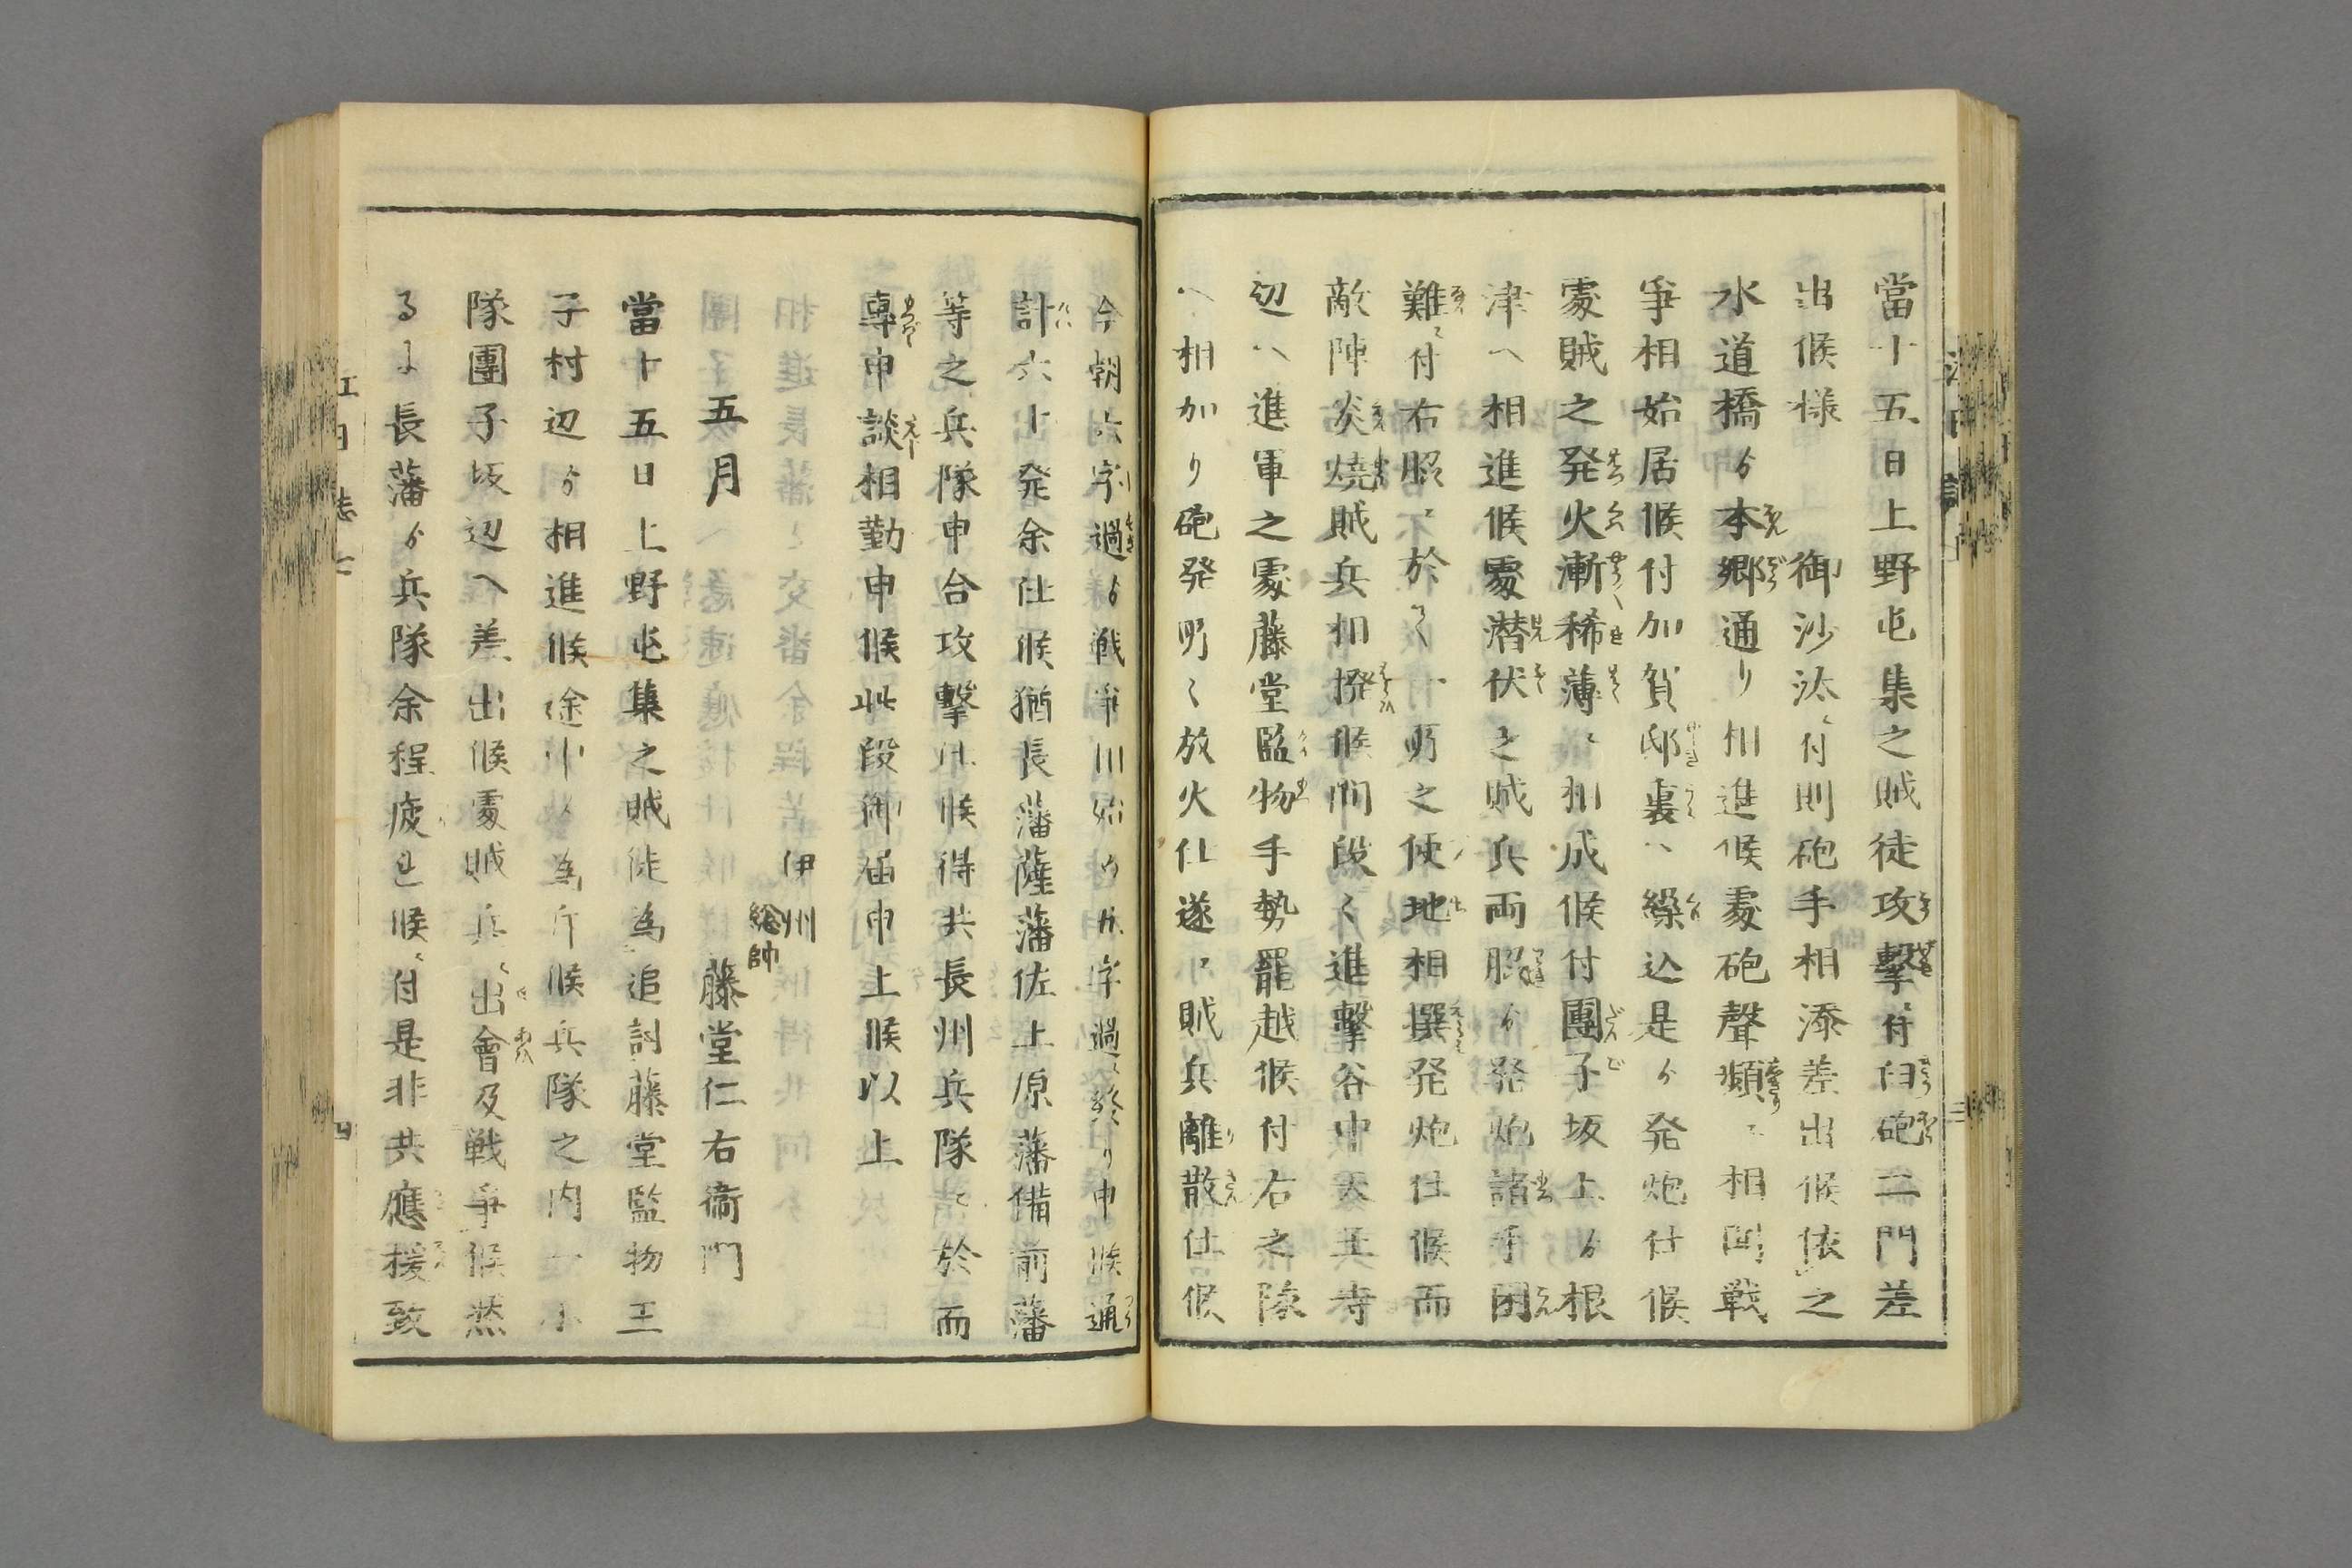 當十五日上野屯集之賊徒攻擊ニ付臼砲二門差
出候様　御沙汰ニ付則砲手相添差出候依之
水道橋ゟ本郷通り相進候處砲聲頻ニ相聞戰
爭相始居候付加賀邸裏へ繰込是ゟ発炮仕候
處賊之発火漸稀薄ニ相成候付團子坂上ゟ根
津へ相進候處潜伏之賊兵両照ゟ発炮諸手困
難ニ付右照ニ於て射之便地相撰発炮仕候而
敵陣炎燒賊兵相撥候間段々進擊谷中天王寺
辺へ進軍之處藤堂監物手勢罷越候付右之隊
へ相加り砲発所々放火仕遂ニ賊兵離散仕候
今朝六字過ゟ戦争相始り六字過ニ終り申候通
計六十発余仕候猶長藩薩藩佐土原藩備前藩
等之兵隊申合攻擊仕候得共長州兵隊ニ於而
專申談相勤申候此段御届申上候以上
伊州
総帥
五月　藤堂仁右衞門
當十五日上野屯集之賊徒為追討藤堂監物王
子村辺ゟ相進候途中ゟ為斤候兵隊之内一小
隊團子坂辺へ差出候處賊兵ニ出會及戦争候然
るよ長藩ゟ兵隊余程疲已候ニ付是非共應援致